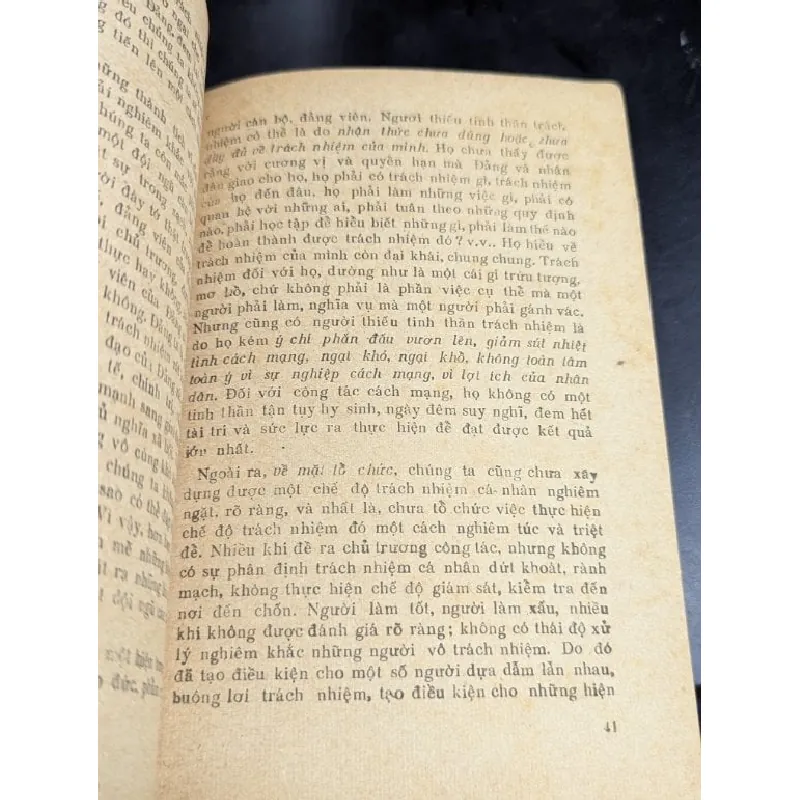 ững thành tích
một đội ngũ
đầy tớ thật
đảng viên
chủ trương
thực hay không
viên của Đảng
không. Đảng ta
trách nhiệm
đạo của Đảng
tế, chính trị
mạnh sang
nghĩa xã hội
vô cùng
chúng ta
sao có thể
Vì vậy, hơn
mẽ những
ra những
đội ngũ
hiện
đức, phẩm
người cán bộ, đảng viên. Người thiếu tinh thần trách
nhiệm có thể là do nhận thức chưa đúng hoặc chưa
đầy đủ về trách nhiệm của mình. Họ chưa thấy được
rằng với cương vị và quyền hạn mà Đảng và nhân
dân giao cho họ, họ phải có trách nhiệm gì, trách nhiệm
của họ đến đâu, họ phải làm những việc gì, phải có
quan hệ với những ai, phải tuân theo những quy định
nào, phải học tập để hiểu biết những gì, phải làm thế nào
để hoàn thành được trách nhiệm đó? v.v.. Họ hiểu về
trách nhiệm của mình còn đại khái, chung chung. Trách
nhiệm đối với họ, dường như là một cái gì trừu tượng,
mơ hồ, chứ không phải là phần việc cụ thể mà một
người phải làm, nghĩa vụ mà một người phải gánh vác.
Nhưng cũng có người thiếu tinh thần trách nhiệm là
do họ kém ý chí phấn đấu vươn lên, giảm sút nhiệt
tình cách mạng, ngại khó, ngại khổ, không toàn tâm
toàn ý vì sự nghiệp cách mạng, vì lợi ích của nhân
dân. Đối với công tác cách mạng, họ không có một
tinh thần tận tụy hy sinh, ngày đêm suy nghĩ, đem hết
tài trí và sức lực ra thực hiện để đạt được kết quả
lớn nhất.
Ngoài ra, về mặt tổ chức, chúng ta cũng chưa xây
dựng được một chế độ trách nhiệm cá nhân nghiêm
ngặt, rõ ràng, và nhất là, chưa tổ chức việc thực hiện
chế độ trách nhiệm đó một cách nghiêm túc và triệt
để. Nhiều khi đề ra chủ trương công tác, nhưng không
có sự phân định trách nhiệm cá nhân dứt khoát, rành
mạch, không thực hiện chế độ giám sát, kiểm tra đến
nơi đến chốn. Người làm tốt, người làm xấu, nhiều
khi không được đánh giá rõ ràng; không có thái độ xử
lý nghiêm khắc những người vô trách nhiệm. Do đó
đã tạo điều kiện cho một số người dựa dẫm lẫn nhau,
buông lơi trách nhiệm, tạo điều kiện cho những hiện
41